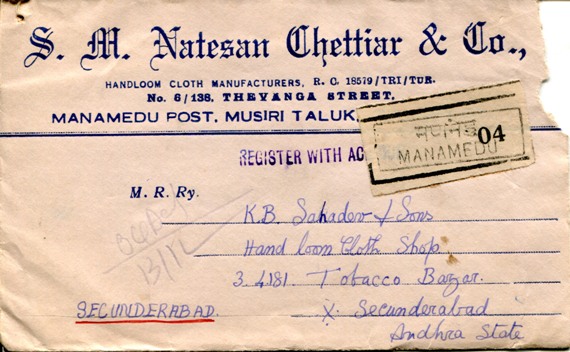 S. M. Natesan Chettiar & Co.,
HANDLOOM CLOTH MANUFACTURERS, R. C. 18579/TRI/TUR.
No. 6/138, THEVANGA STREET,
MANAMEDU POST, MUSIRI TALUK
04
MANAMEDU
REGISTER WITH AC
M. R. Ry.
K.B. Sahadev & Sons
Hand loom Cloth Shop
3.4.181. Tobacco Bazar.
SECUNDERABAD.
X. Secunderabad
Andhra State
13/12